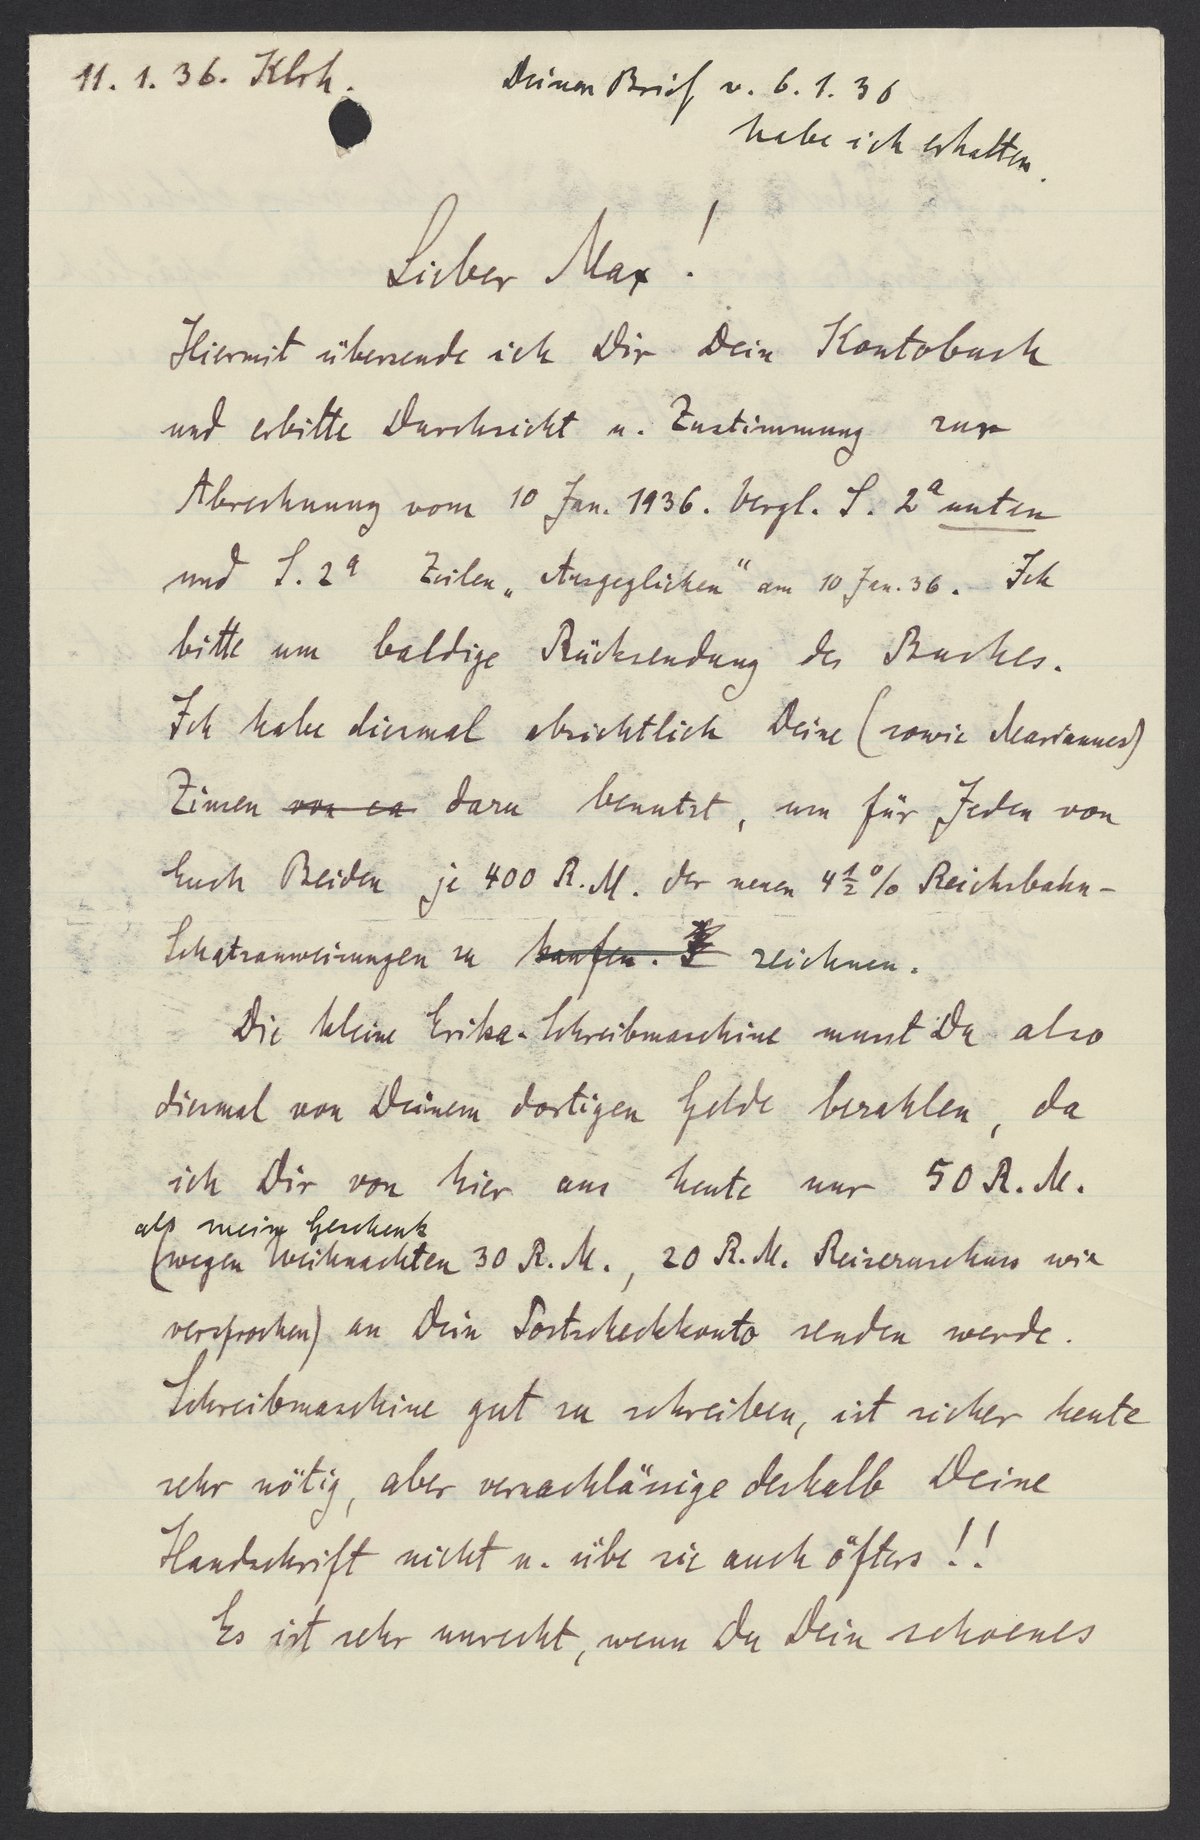 11. 1. 36. Klrh.
Deinen Brief v. 6. 1. 36
habe ich erhalten.
Lieber Max!
Hiermit übersende ich Dir Dein Kontobuch
und erbitte Durchsicht u. Zustimmung zur
Abrechnung vom 10 Jan. 1936. Vergl. S. 2a unten
und S. 2a Zeilen „Ausgeglichen“ am 10 Jan. 36. Ich
bitte um baldige Rücksendung des Buches.
Ich habe diesmal absichtlich Deine (sowie Mariannes)
Zinsen von ca dazu benutzt, um für Jeden von
Euch Beiden je 400 R.M. der neuen 4½% Reichsbahn-
Schatzanweisungen zu kaufen. zeichnen.
Die kleine Erika-Schreibmaschine musst Du also
diesmal von Deinem dortigen Gelde bezahlen, da
ich Dir von hier aus heute nur 50 R.M.
als mein Geschenk
(wegen Weihnachten 30 R.M., 20 R.M. Reisezuschuss wie
versprochen) an Dein Postscheckkonto senden werde.
Schreibmaschine gut zu schreiben, ist sicher heute
sehr nötig, aber vernachlässige deshalb Deine
Handschrift nicht u. übe sie auch öfters!!
Es ist sehr unrecht, wenn Du Dein schoenes